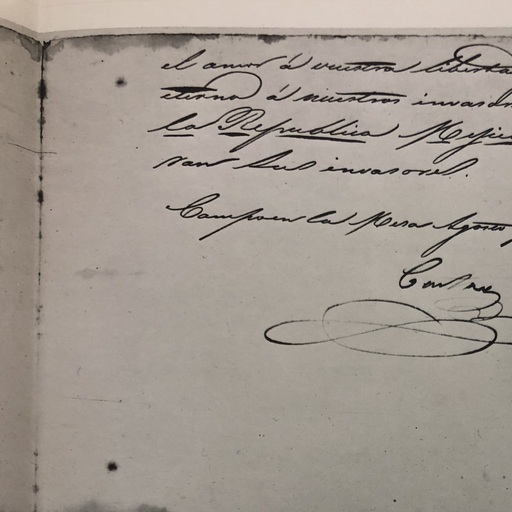 el amor á vuestra liberta
eterno á nuestros invasor
la República Mejic
ran sus invasores.
Campo en la Mesa Agosto